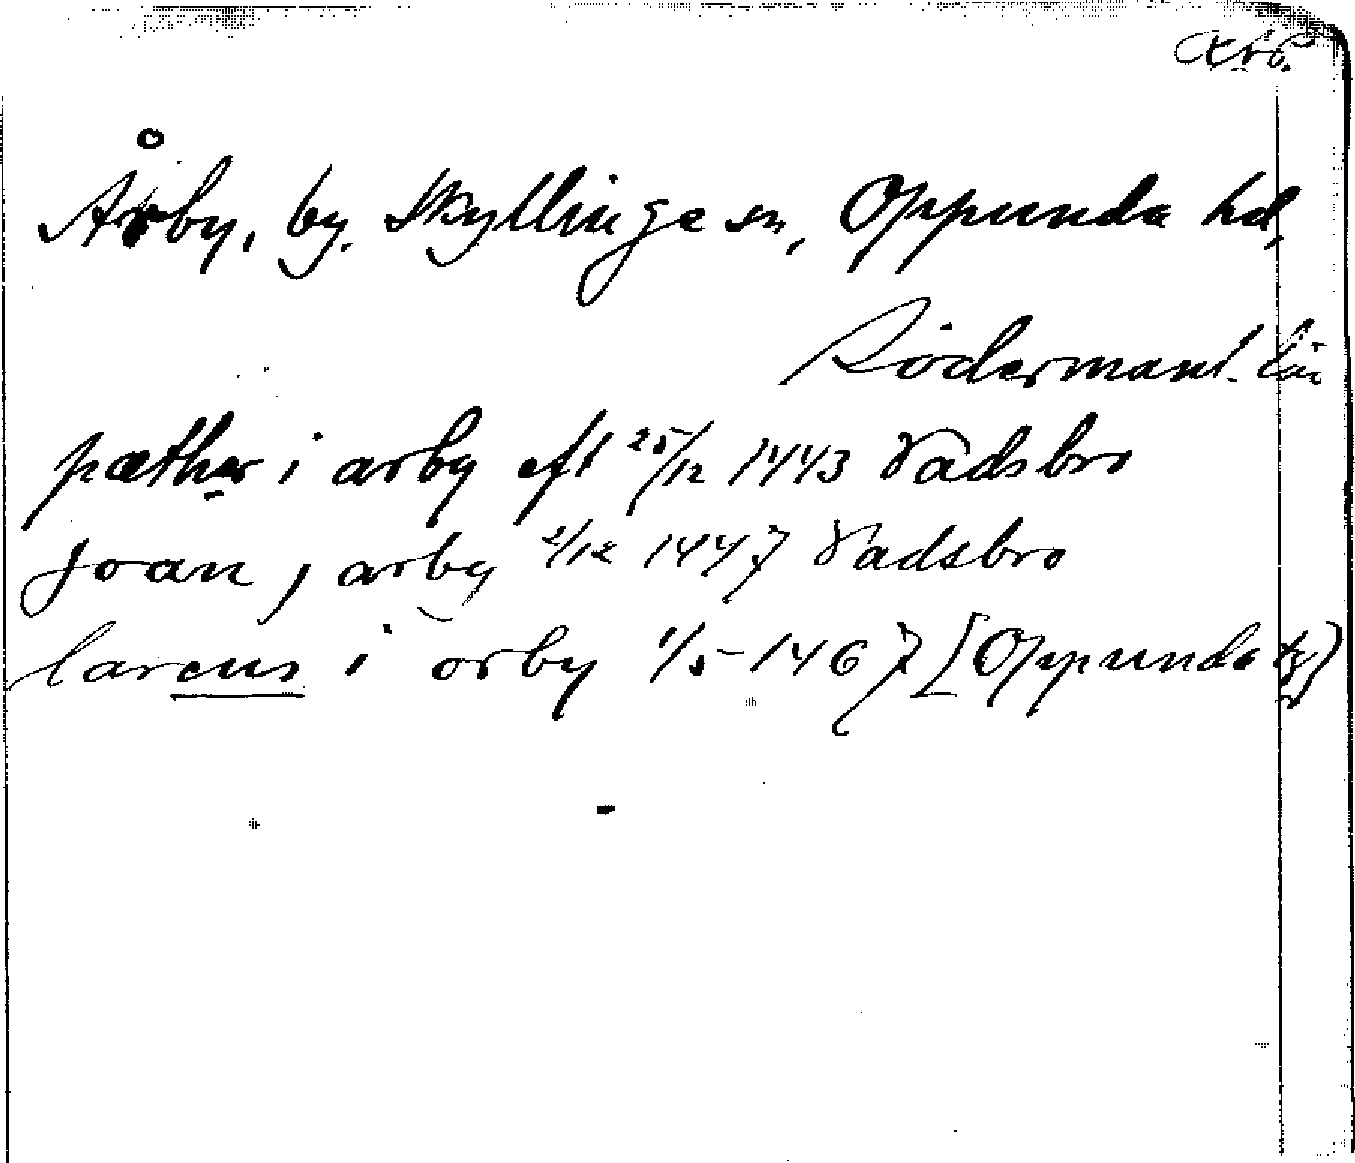 Årby, by. Skyllinge sn, Oppunda hd,
Södermanl. län
pæther i arby eft 25/12 1443 Vadsbro
Joan j arby 2/12 1447 Vadsbro
larcus i orby 1/5 1467 [Oppunda